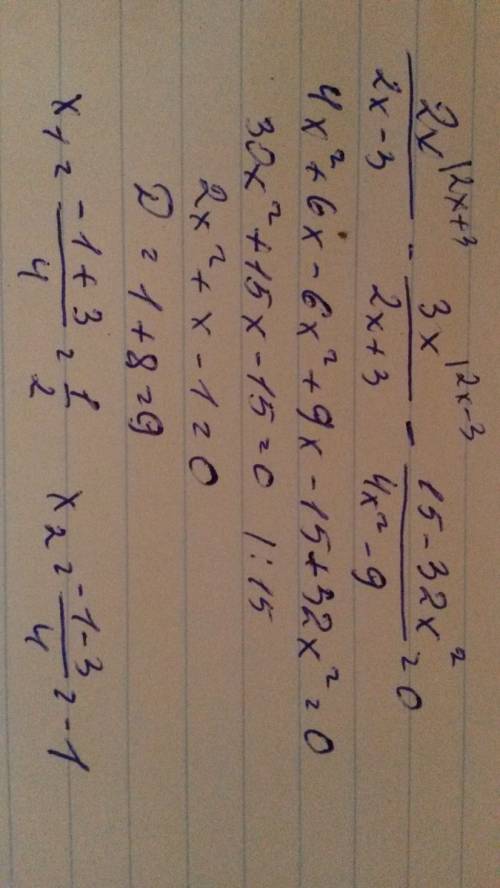 2x |2x+3 / 2x-3 - 3x |2x-3 / 2x+3 - 15-32x² / 4x²-9 = 0
4x²+6x-6x²+9x-15+32x²=0
30x²+15x-15=0 |:15
2x²+x-1=0
D=1+8=9
x₁ = -1+3 / 4 = 1/2 x₂ = -1-3 / 4 = -1